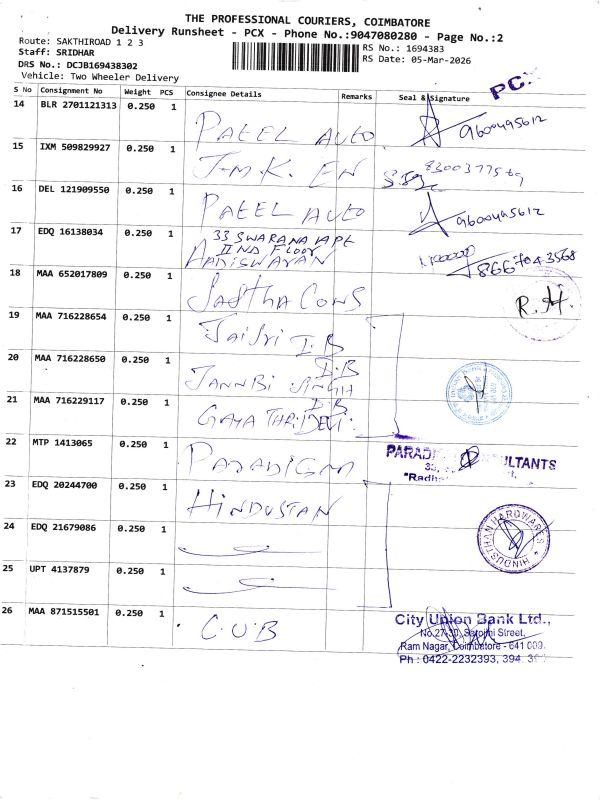 THE PROFESSIONAL COURIERS, COIMBATORE
Delivery Runsheet - PCX - Phone No.:9047080280 - Page No.:2
Route: SAKTHIROAD 1 2 3
Staff: SRIDHAR
DRS No.: DCJB169438302
Vehicle: Two Wheeler Delivery
RS No.: 1694383
RS Date: 05-Mar-2026
PCX
S No Consignment No Weight PCS Consignee Details Remarks Seal & Signature
14 BLR 2701121313 0.250 1 PATEL AUTO 9600495612
15 IXM 509829927 0.250 1 J.M.K. EN
16 DEL 121909550 0.250 1 PATEL AUTO 9600495612
17 EDQ 16138034 0.250 1 33 SWARANA APT
II ND FLOOR
8667043568
18 MAA 652017809 0.250 1 Sastha Cons R.H.
19 MAA 716228654 0.250 1 Jaisri I.B
20 MAA 716228650 0.250 1 I.B
JANNBI SINGH
21 MAA 716229117 0.250 1 I.B
GAYATHRIDEVI
22 MTP 1413065 0.250 1 PARADIGM
23 EDQ 20244700 0.250 1 HINDUSTAN
HINDUSTHAN HARDWARES
24 EDQ 21679086 0.250 1
25 UPT 4137879 0.250 1
26 MAA 871515501 0.250 1 C.U.B
City Union Bank Ltd.,
No.27-30, Street,
Ram Nagar, Coimbatore - 641 009.
Ph : 0422-2232393, 394